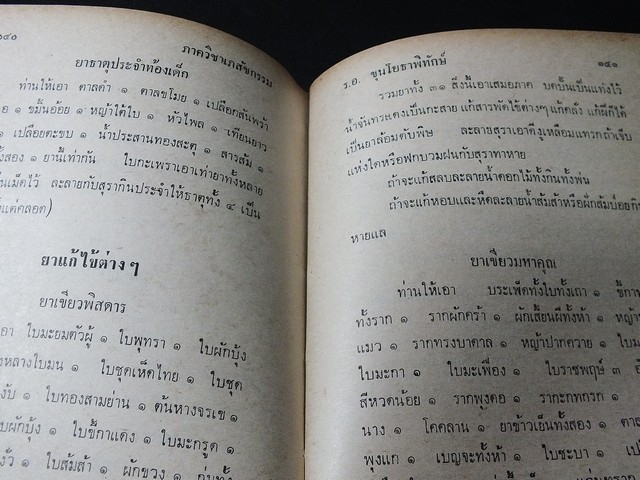 ๑๔๐
ภาควิชาเภสัชกรรม
ยาธาตุประจำท้องเด็ก
ท่านให้เอา ตาลดำ ๑ ตาลขโมย ๑ เปลือกสันพร้า
๑ ขมิ้นอ้อย ๑ หญ้าใต้ใบ ๑ หัวไพล ๑ เทียนยาว
๑ เปลือยตะขบ ๑ น้ำประสานทองสะตุ ๑ สารส้ม ๑
ทั้งสอง ๑ ยานี้เท่ากัน ใบกะเพราเอาเท่ายาทั้งหลาย
เม็ดไว้ ละลายกับสุรากินประจำให้ธาตุทั้ง ๔ เป็น
แต่คลอด)
ยาแก้ไข้ต่างๆ
ยาเขียวพิสดาร
เอา ใบมะยมตัวผู้ ๑ ใบพุทรา ๑ ใบผักบุ้ง
หลางใบมน ๑ ใบชุดเห็ดไทย ๑ ใบชุด
๑ ใบทองสามย่าน ๑ ต้นหางจรเข้ ๑
ใบผักบุ้ง ๑ ใบขี้กาแดง ๑ ใบมะกรูด ๑
๑ ใบส้มส้า ๑ ผักขวง ๑
ร.อ. ขุนโยธาพิทักษ์
๑๔๑
รวมยาทั้ง ๓๑ สิ่งนี้เอาเสมอภาค บดปั้นเป็นแท่งไว้
น้ำจันทร์แดงเป็นกะสาย แก้สารพัดไข้ต่างๆ แก้คลั่ง แก้ผีก็ได้
เป็นยาล้อมดับพิษ ละลายสุราเอาดีงูเหลือมแทรกถ้าเจ็บ
แห่งใดหรือฟกบวมฝนกับสุราทาหาย
ถ้าจะแก้สลบละลายน้ำดอกไม้ทั้งกินทั้งพ่น
ถ้าจะแก้หอบและหืดละลายน้ำส้มส้าหรือฝักส้มป่อย
หายแล
ยาเขียวมหาคุณ
ท่านให้เอา บระเพ็ดทั้งใบทั้งเถา ๑
ทั้งราก ๑ รากผักคร้า ๑ ผักเสี้ยนผีทั้งห้า ๑
แมว ๑ รากทรงบาดาล ๑ หญ้าปากควาย ๑
ใบมะกา ๑ ใบมะเฟือง ๑ ใบราชพฤษ์ ๓
สีหวดน้อย ๑ รากพุงดอ ๑ รากะกทกรก ๑
นาง ๑ โคคลาน ๑ ยาข้าวเย็นทั้งสอง ๑
พุงแก ๑ เบญจะทั้งห้า ๑ ใบชะบา ๑